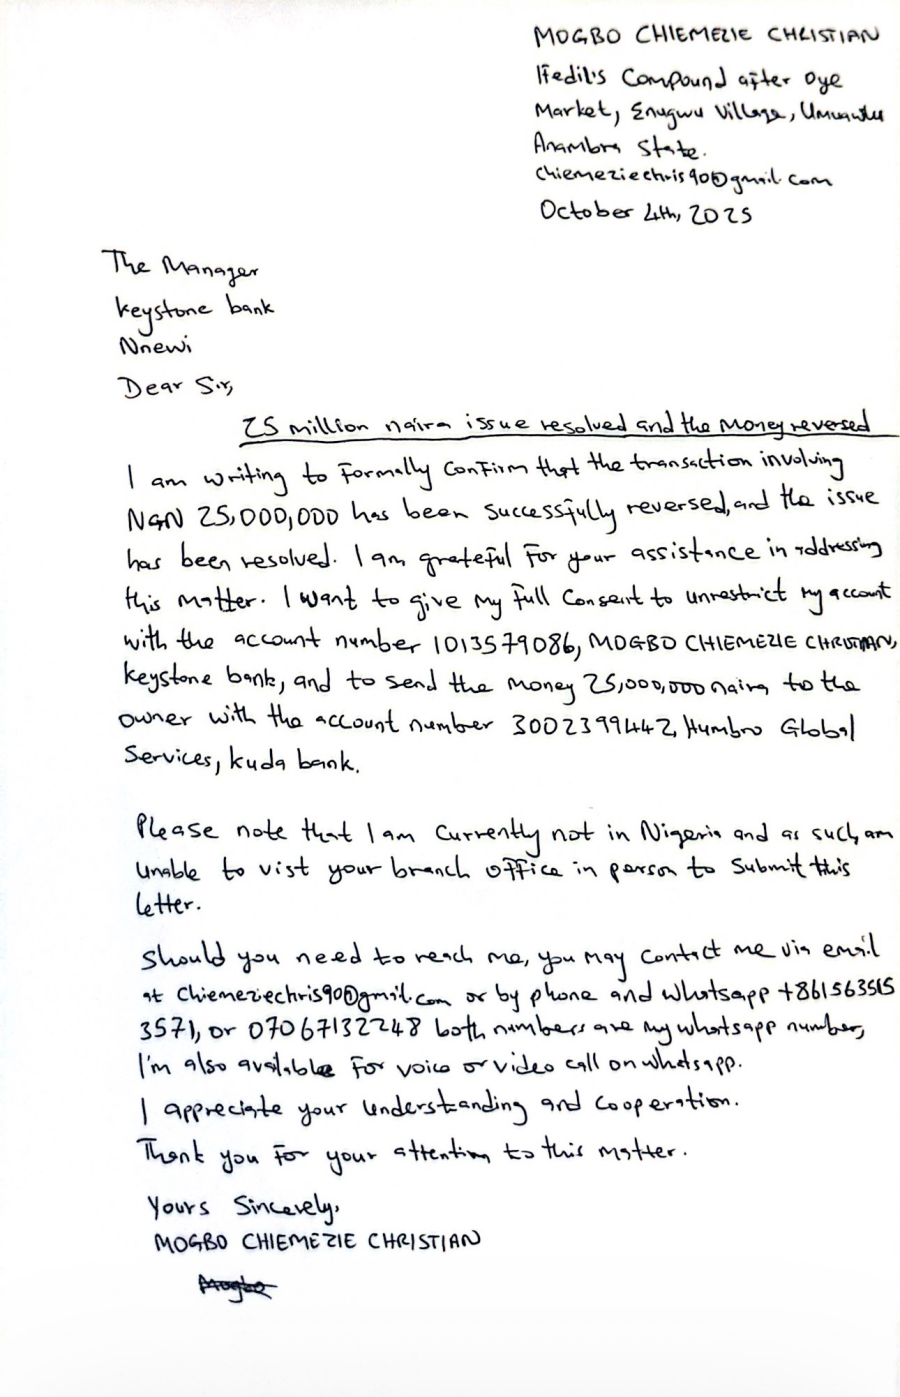 MOGBO CHIEMEZIE CHRISTIAN
Ifedil's Compound after Oye
Market, Enugwu Village, Umuawulu
Anambra State.
chiemeziechris90@gmail.com
October 4th, 2025
The Manager
keystone bank
Nnewi
Dear Sir,
25 million naira issue resolved and the Money reversed
I am writing to Formally Confirm that the transaction involving
NGN 25,000,000 has been successfully reversed, and the issue
has been resolved. I am grateful for your assistance in addressing
this matter. I want to give my full Consent to unrestrict my account
with the account number 1013579086, MOGBO CHIEMEZIE CHRISTIAN,
keystone bank, and to send the money 25,000,000 naira to the
owner with the account number 3002399442, Humbro Global
Services, kuda bank.
Please note that I am currently not in Nigeria and as such, am
Unable to vist your branch office in person to Submit this
letter.
Should you need to reach me, you may contact me via email
at Chiemeziechris90@gmail.com or by phone and whatsapp +861563515
3571, or 07067132248 both numbers are my whatsapp number,
I'm also available For voice or video call on whatsapp.
I appreciate your Understanding and cooperation.
Thank you For your attention to this matter.
Yours Sincerely,
MOGBO CHIEMEZIE CHRISTIAN
Mogbo